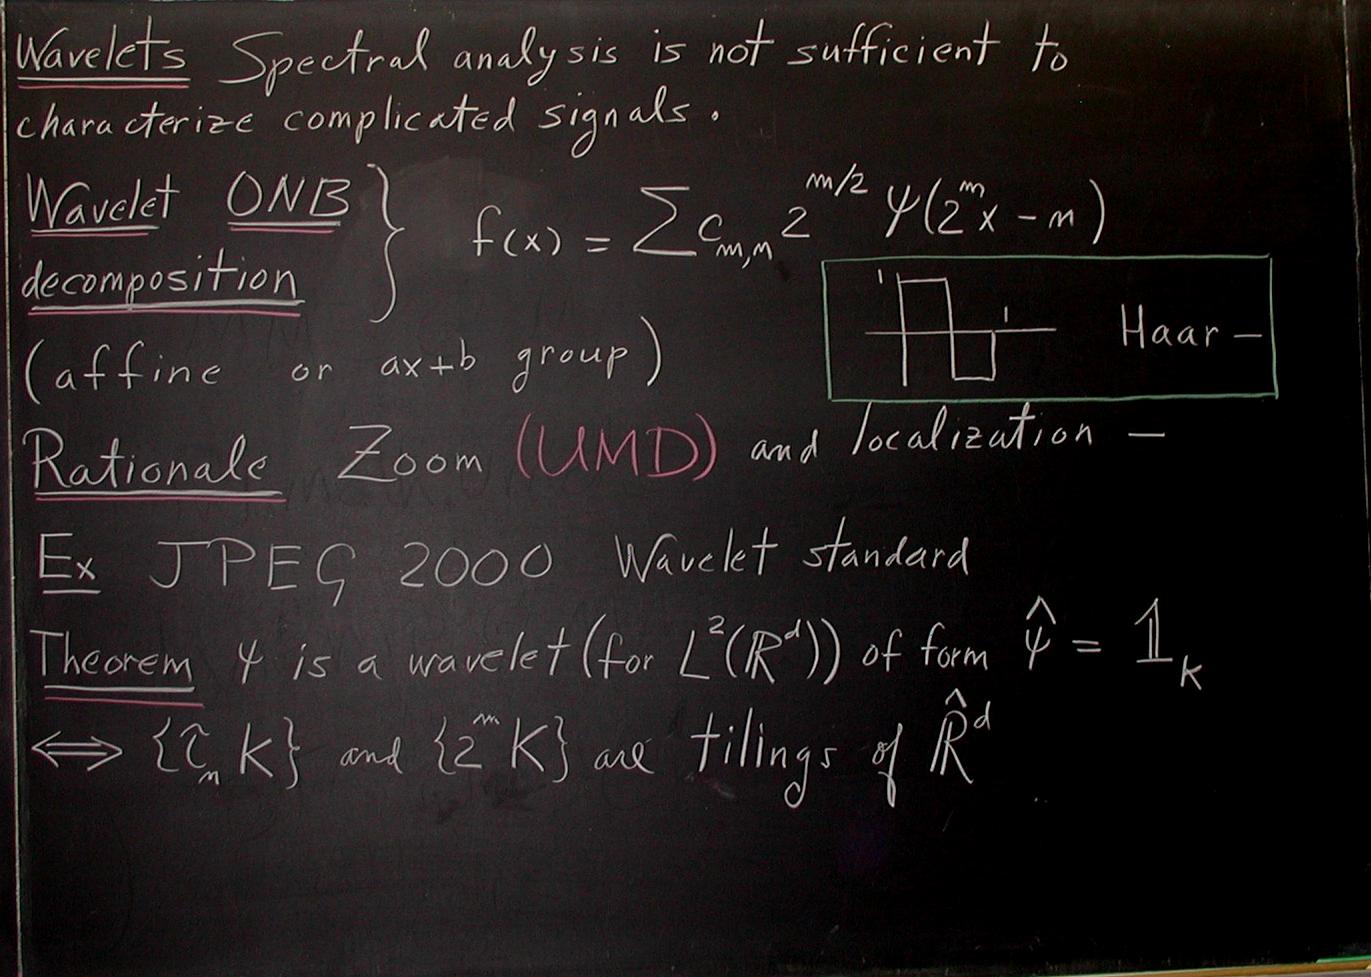 Wavelets Spectral analysis is not sufficient to
characterize complicated signals.
Wavelet ONB
decomposition } f(x) = ∑ c_{m,n} 2^{m/2} ψ(2^m x - n)
1 1 Haar —
(affine or ax+b group)
Rationale Zoom (UMD) and localization —
Ex JPEG 2000 Wavelet standard
Theorem ψ is a wavelet (for L²(ℝ^d)) of form ψ̂ = 𝟙_K
⟺ {τ_n K} and {2^m K} are tilings of ℝ̂^d